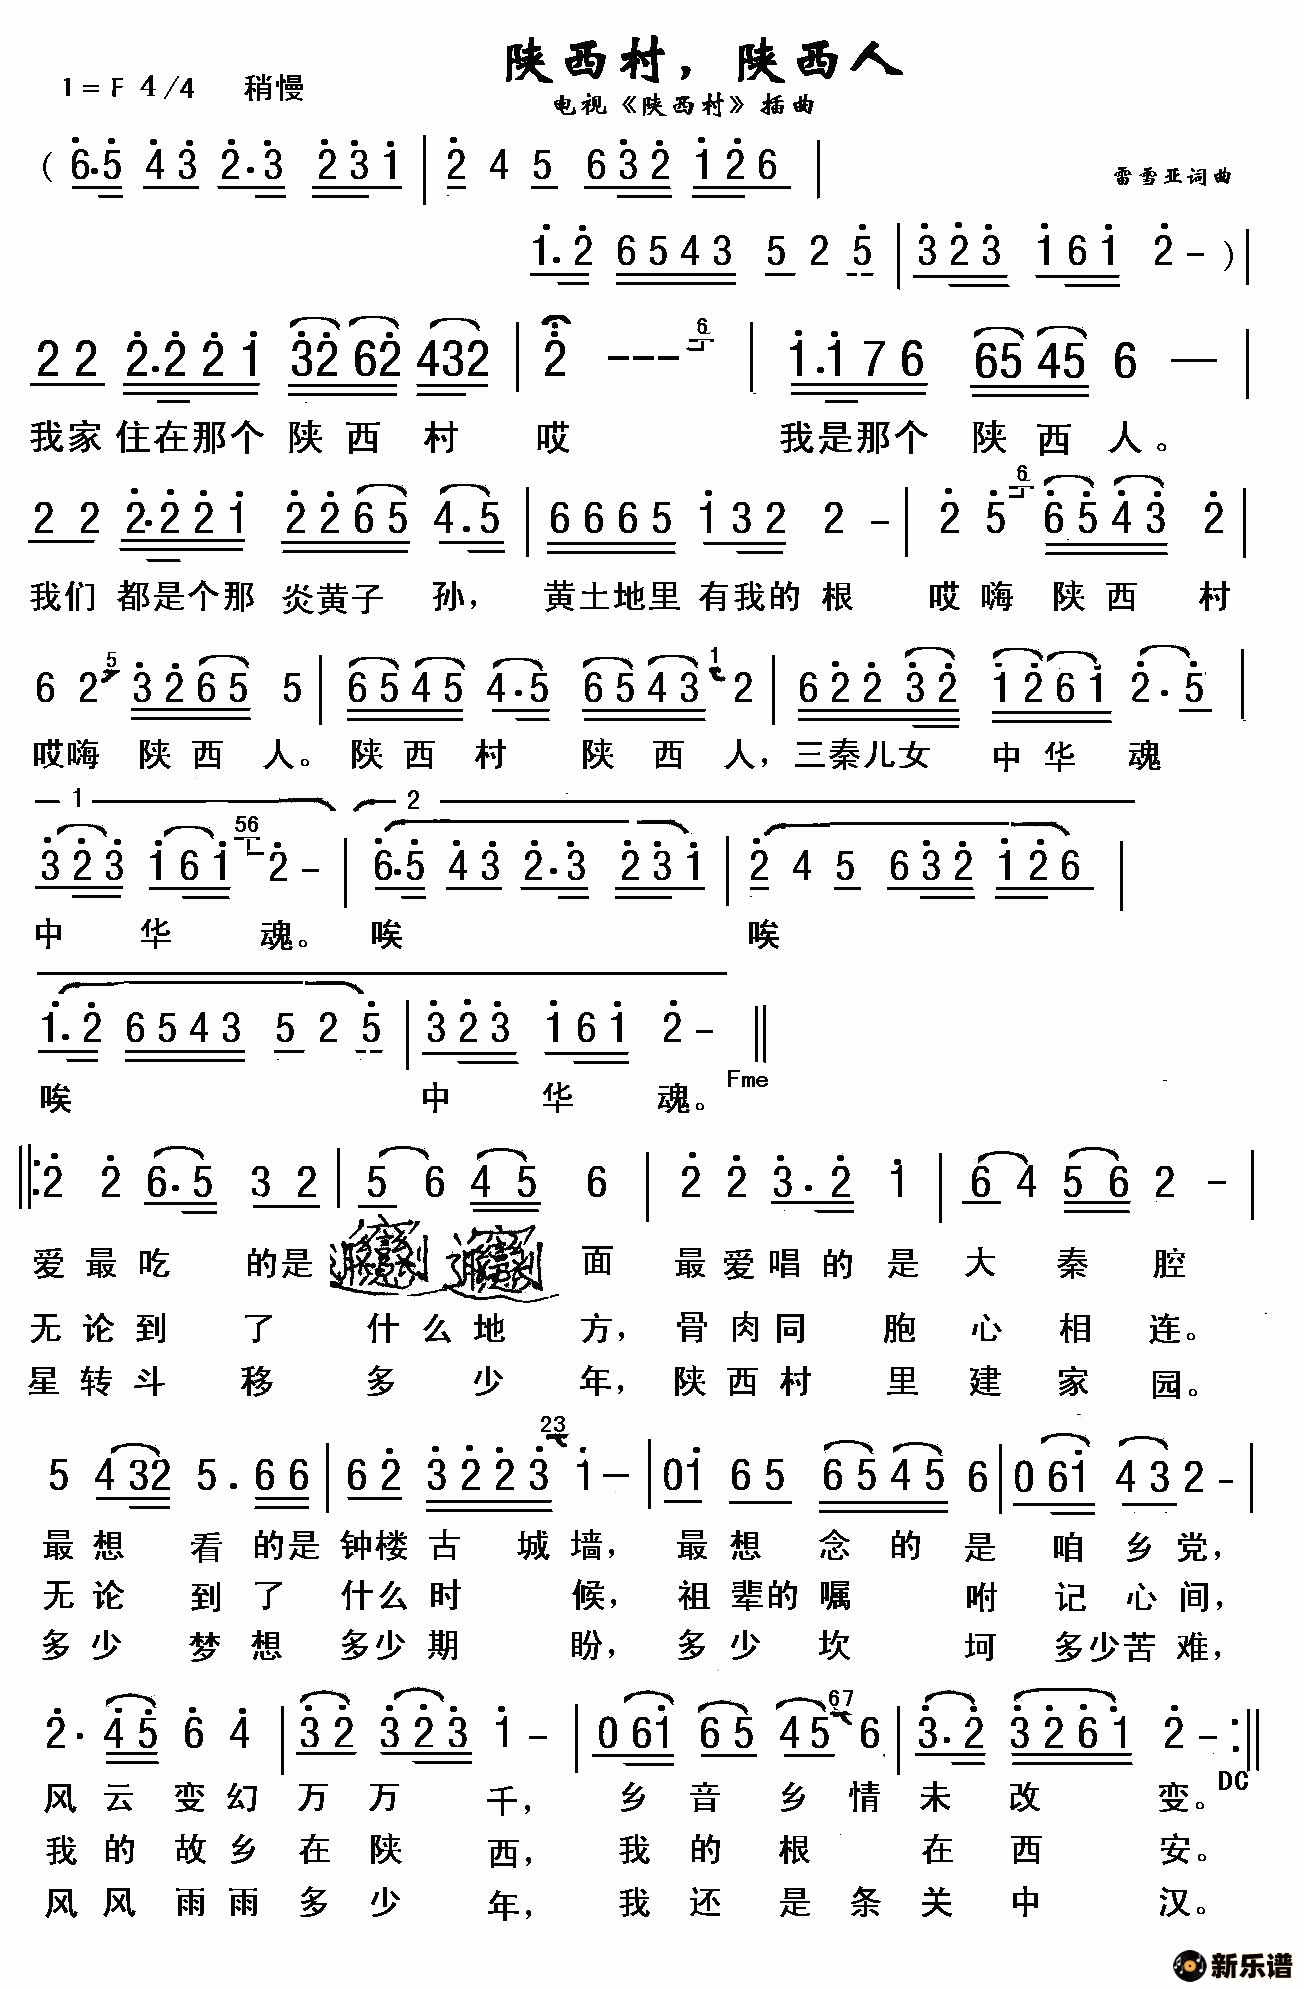 陕西村，陕西人
1=F 4/4 稍慢
电视《陕西村》插曲
(6.5 43 2.3 231 | 2 4 5 632 126 |
雷雪亚词曲
1.2 6543 5 2 5 | 323 161 2 - ) |
6
22 2.221 32 62 432 | 2 --- | 1.176 6545 6 — |
我家住在那个陕西村哎 我是那个陕西人。
6
22 2.221 2265 4.5 | 6665 132 2 - | 2 5 6543 2 |
我们都是个那炎黄子孙，黄土地里有我的根 哎嗨陕西村
5 1
6 2 3265 5 | 6545 4.5 6543 2 | 622 32 1261 2.5 |
哎嗨陕西人。陕西村陕西人，三秦儿女中华魂
1 2
56
323 161 2 - | 6.5 43 2.3 231 | 2 4 5 632 126 |
中华魂。唉 唉
1.2 6543 5 2 5 | 323 161 2 - ‖
Fme
唉 中华魂。
‖: 2 2 6.5 3 2 | 5 6 45 6 | 2 2 3.2 1 | 6 4 56 2 - |
爱最吃的是 面最爱唱的是大秦腔
无论到了什么地方，骨肉同胞心相连。
星转斗移多少年，陕西村里建家园。
23
5 432 5. 66 | 62 3223 1 — | 01 65 6545 6 | 061 43 2 - |
最想看的是钟楼古城墙，最想念的是咱乡党，
无论到了什么时候，祖辈的嘱咐记心间，
多少梦想多少期盼，多少坎坷多少苦难，
67
2. 45 6 4 | 32 323 1 - | 061 65 45 6 | 3.2 3261 2 - :‖
DC
风云变幻万万千，乡音乡情未改变。
我的故乡在陕西，我的根在西安。
风风雨雨多少年，我还是条关中汉。
新乐谱